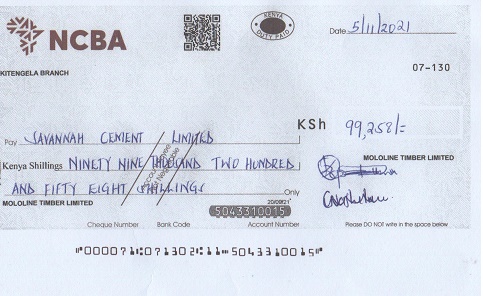 NCBA
KENYA
DUTY PAID
Date 5/11/2021
KITENGELA BRANCH
07-130
KSh 99,258/=
Pay SAVANNAH CEMENT LIMITED
Kenya Shillings NINETY NINE THOUSAND TWO HUNDRED
AND FIFTY EIGHT SHILLINGS Only
Not Negotiable
MOLOLINE TIMBER LIMITED
MOLOLINE TIMBER LIMITED
5043310015
Cheque Number Bank Code Account Number
Please DO NOT write in the space below